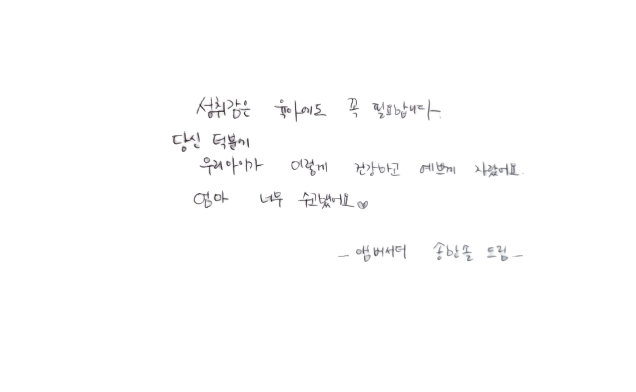 성취감은 육아에도 꼭 필요합니다.
당신 덕분에
우리아이가 이렇게 건강하고 예쁘게 자랐어요.
엄마 너무 수고했어요♡
- 앰버서더 송한솔 드림 -